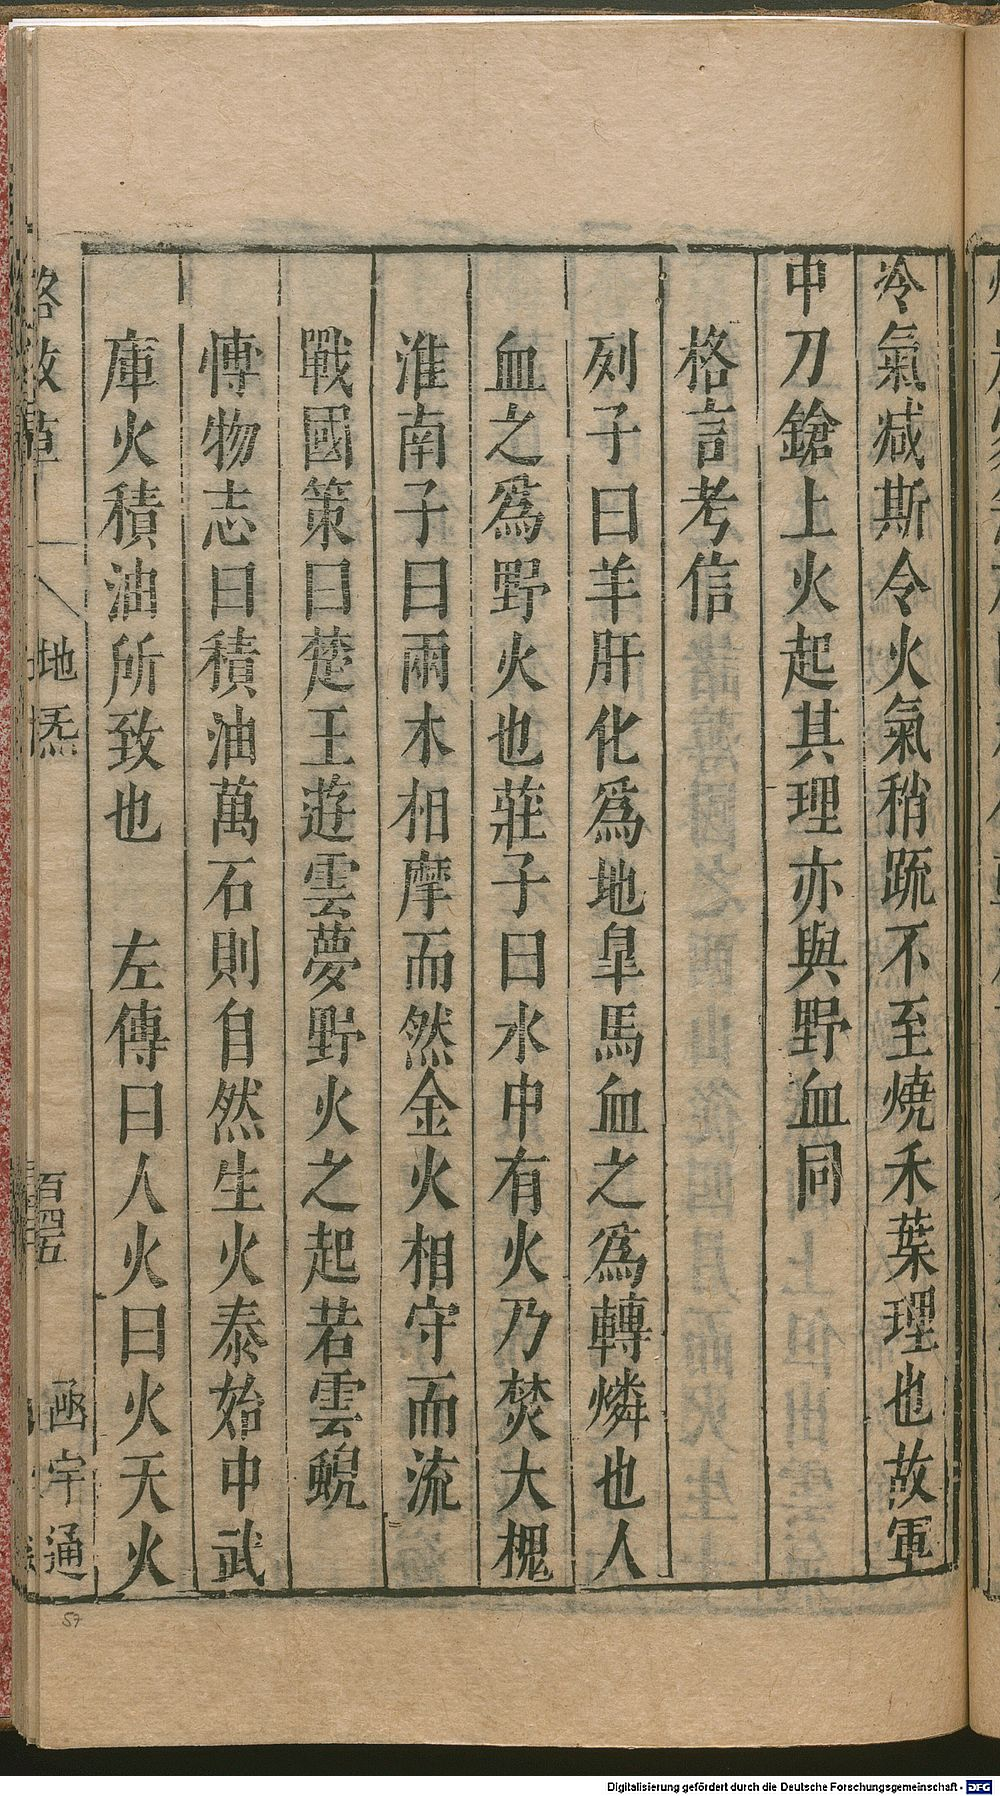 冷氣減斯令火氣稍䟽不至燒禾葉理也故軍
中刀鎗上火起其理亦與野血同
格言考信
列子曰羊肝化爲地臯馬血之爲轉燐也人
血之爲野火也莊子曰水中有火乃焚大槐
淮南子曰兩木相摩而然金火相守而流
戰國策曰楚王遊雲夢野火之起若雲蜺
博物志曰積油萬石則自然生火泰始中武
庫火積油所致也 左傳曰人火曰火天火
格致草
地炁
百四五
函宇通
57
Digitalisierung gefördert durch die Deutsche Forschungsgemeinschaft - DFG